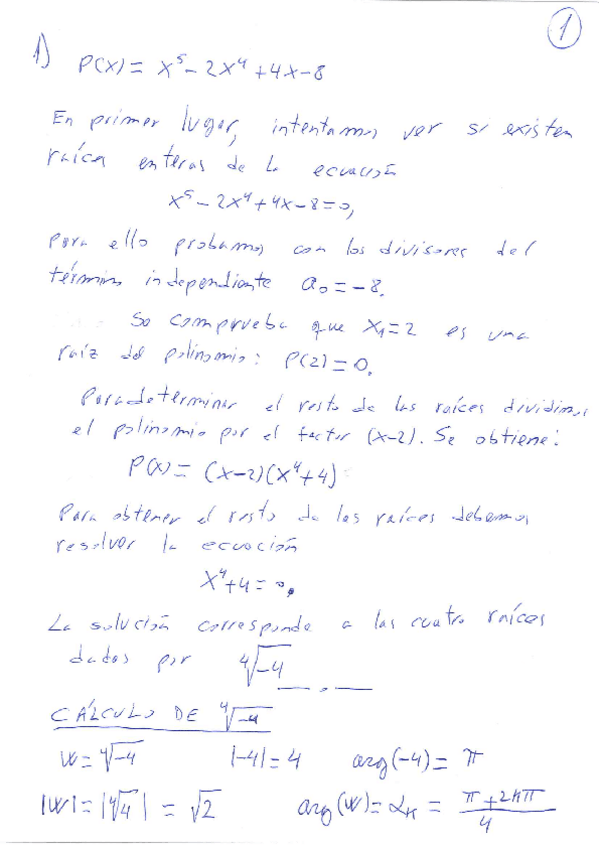 1
1) P(x) = x⁵ - 2x⁴ + 4x - 8
En primer lugar, intentamos ver si existen
raíces enteras de la ecuación
x⁵ - 2x⁴ + 4x - 8 = 0,
para ello probamos con los divisores del
término independiente a₀ = -8.
Se comprueba que x₁ = 2 es una
raíz del polinomio: P(2) = 0.
Para determinar el resto de las raíces dividimos
el polinomio por el factor (x-2). Se obtiene:
P(x) = (x-2)(x⁴+4)
Para obtener el resto de las raíces debemos
resolver la ecuación
x⁴ + 4 = 0.
La solución corresponde a las cuatro raíces
dadas por ⁴√-4
CÁLCULO DE ⁴√-4
w = ⁴√-4 |-4| = 4 arg(-4) = π
|w| = |⁴√4| = √2 arg(w) = αₖ = (π + 2kπ)/4